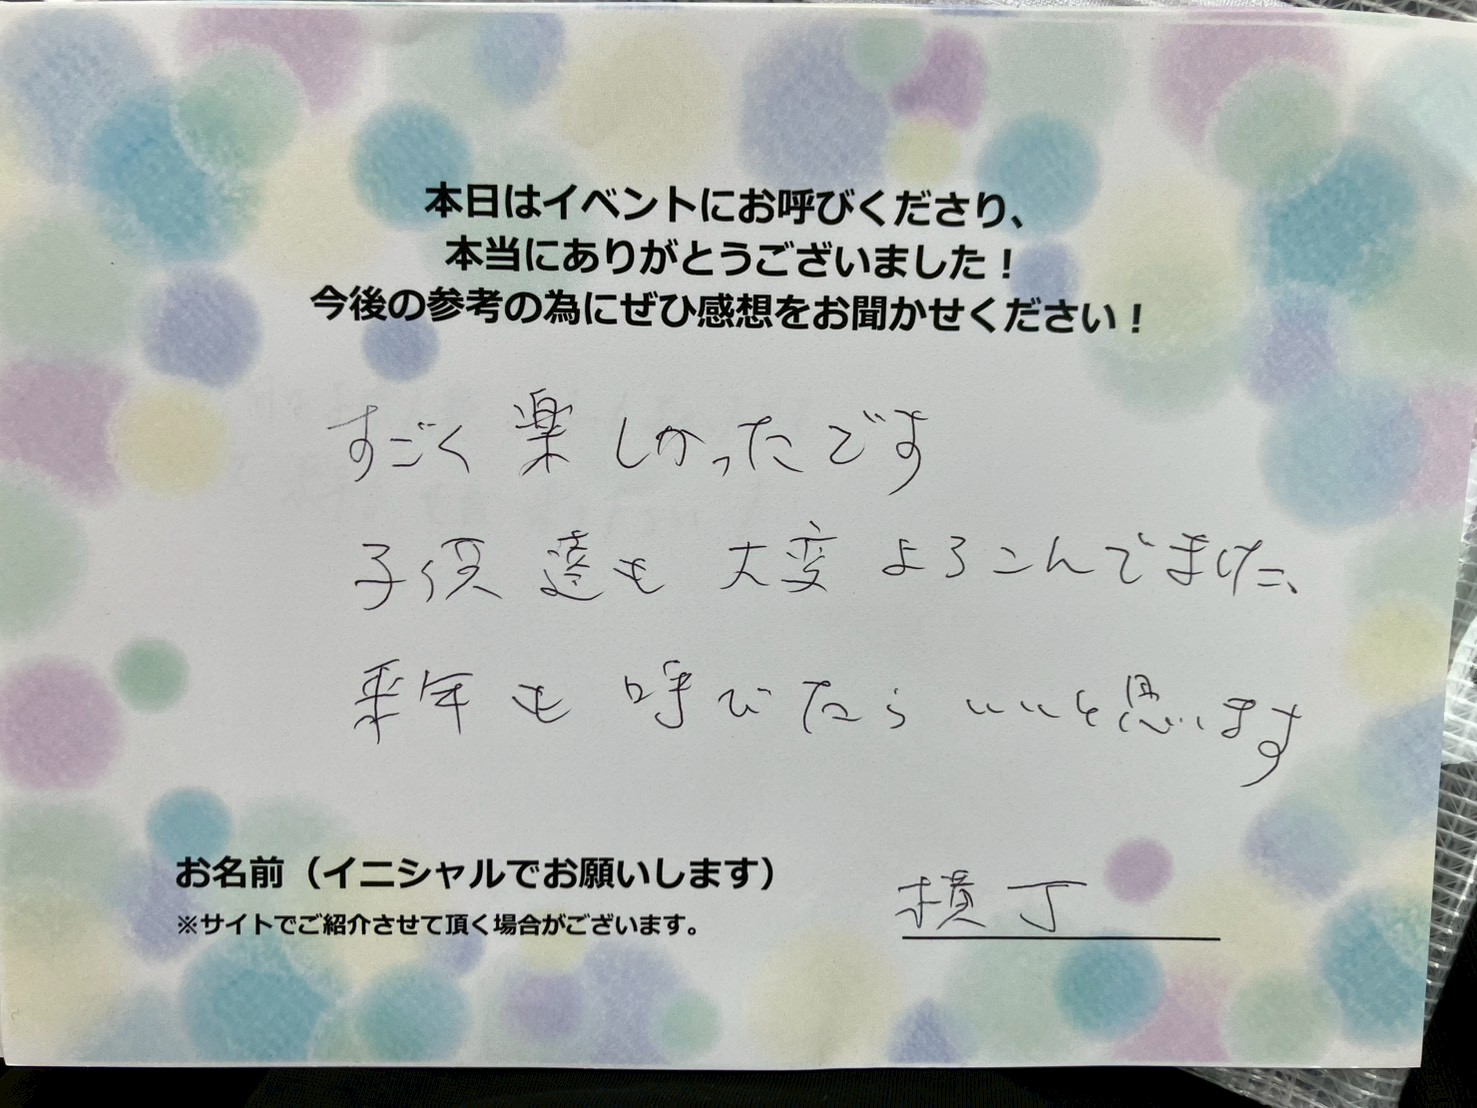 本日はイベントにお呼びくださり、
本当にありがとうございました！
今後の参考の為にぜひ感想をお聞かせください！
すごく楽しかったです
子供達も大変よろこんでました、
来年も呼びたらいいと思います
お名前（イニシャルでお願いします）
※サイトでご紹介させて頂く場合がございます。
横丁